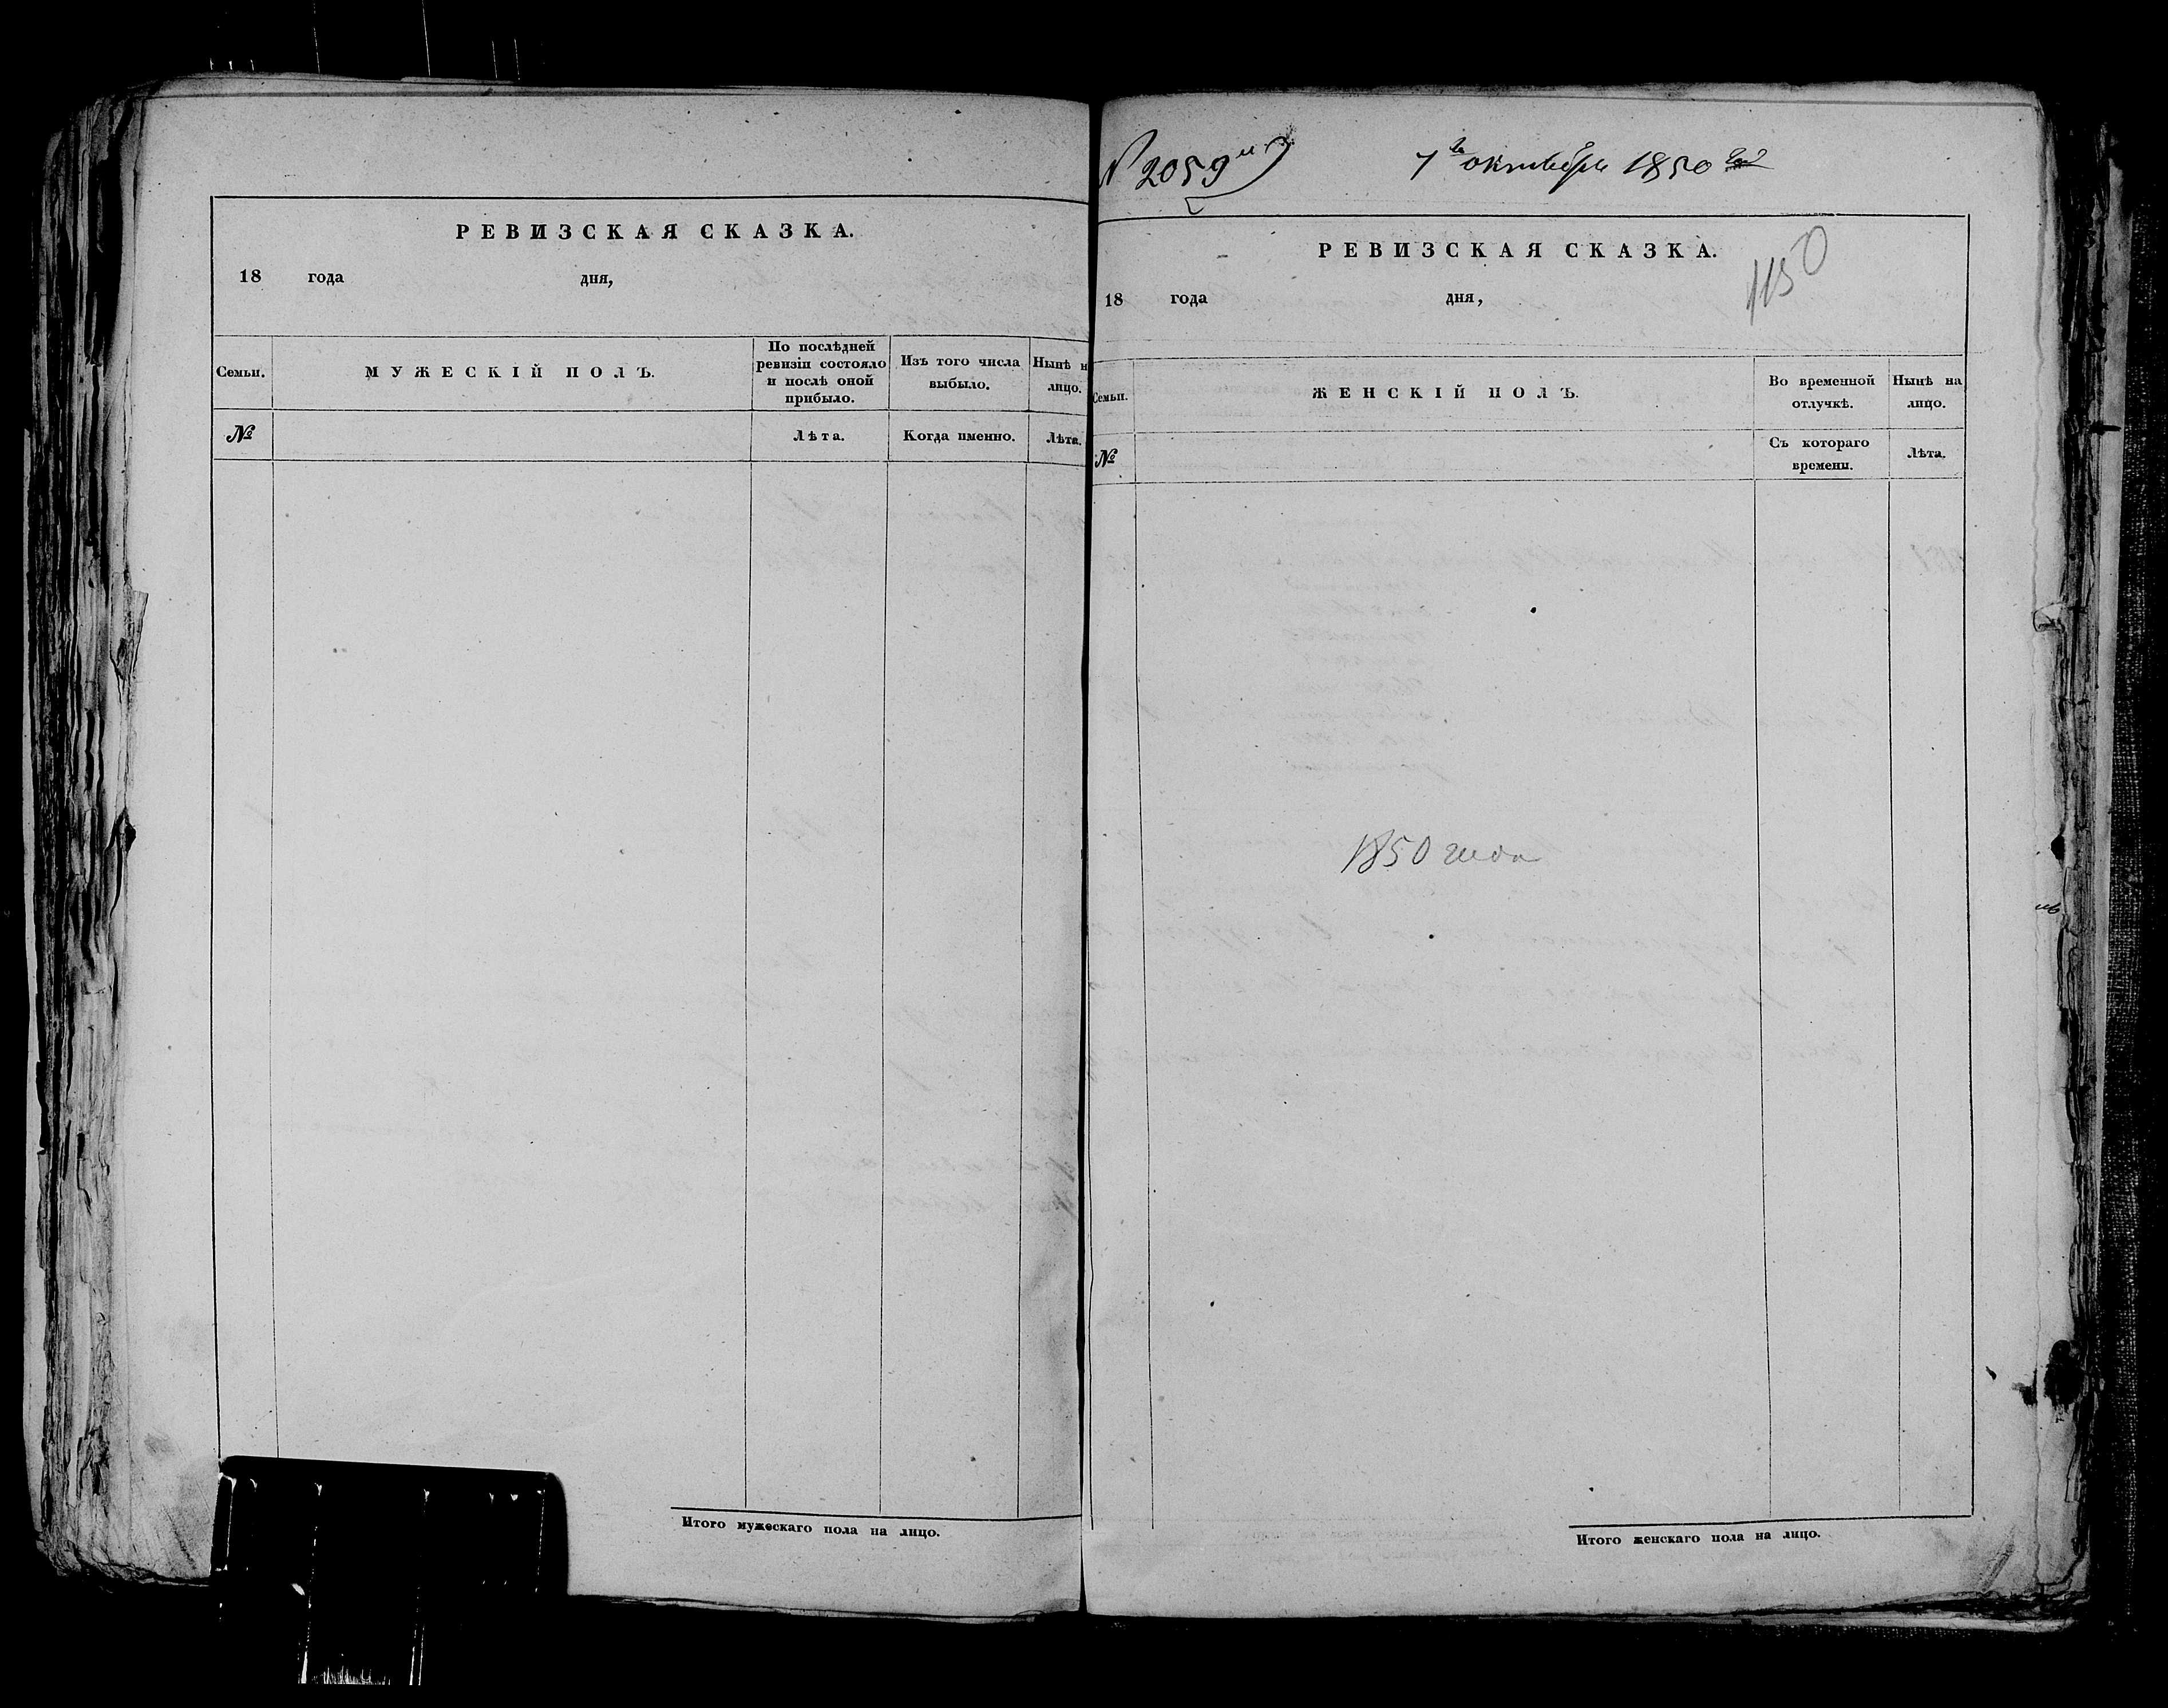 РЕВИЗСКАЯ СКАЗКА.
18 года дня,
Семьи.
МУЖЕСКІЙ ПОЛЪ.
По послѣдней
ревизіи состояло
и послѣ оной
прибыло.
Изъ того числа
выбыло.
Нынѣ н
лицо.
№
Лѣта.
Когда именно.
Лѣта.
Итого мужескаго пола на лицо.
№ 2059й
7 октября 1850
РЕВИЗСКАЯ СКАЗКА.
1150
18 года дня,
Семьи.
ЖЕНСКІЙ ПОЛЪ.
Во временной
отлучкѣ.
Нынѣ на
лицо.
№
Съ котораго
времени.
Лѣта.
1850 года
Итого женскаго пола на лицо.